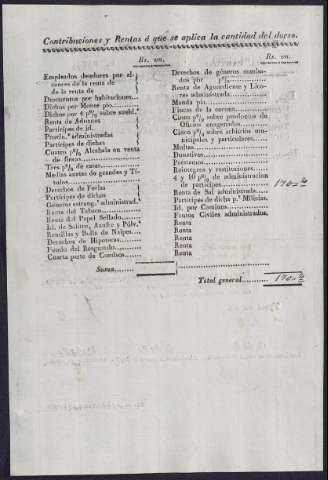 Contribuciones y Rentas á que se aplica la cantidad del dorso.
Rs. vn.
Empleados deudores por alcances de la renta de
de la renta de
Descuentos por habitaciones.
Dichos por Monte pio
Dichos por 4 p% sobre sueld.s
Renta de Aduanas
Participes de id.
Provin.s administradas
Participes de dichas
Cuatro p% Alcabala en venta
de fincas
Tres p% de casas
Medias anatas de grandes y Títulos
Derechos de Puertas
Participes de dichas
Géneros estrang.s administrad.
Renta del Tabaco
Renta del Papel Sellado
Id. de Salitre, Azufre y Pólv.a
Rentillas y Bolla de Naipes
Derechos de Hipotecas
Fondo del Resguardo
Cuarta parte de Comisos
Suma
Rs. vn.
Derechos de géneros
dos por
Renta de Aguardiente y Licores administrada
Manda pia
Fincas de la corona
Cinco p% sobre productos de
Oficios enagenados
Cinco p% sobre arbitrios municipales y particulares
Multas
Donativos
Préstamos
Reintegros y restituciones
4 y 10 p% de administracion
de participes
Renta de Sal administrada
Participes de dicha p.a Milicias
Id. por Caminos
Frutos Civiles administrados
Renta
Renta
Renta
Renta
Total general